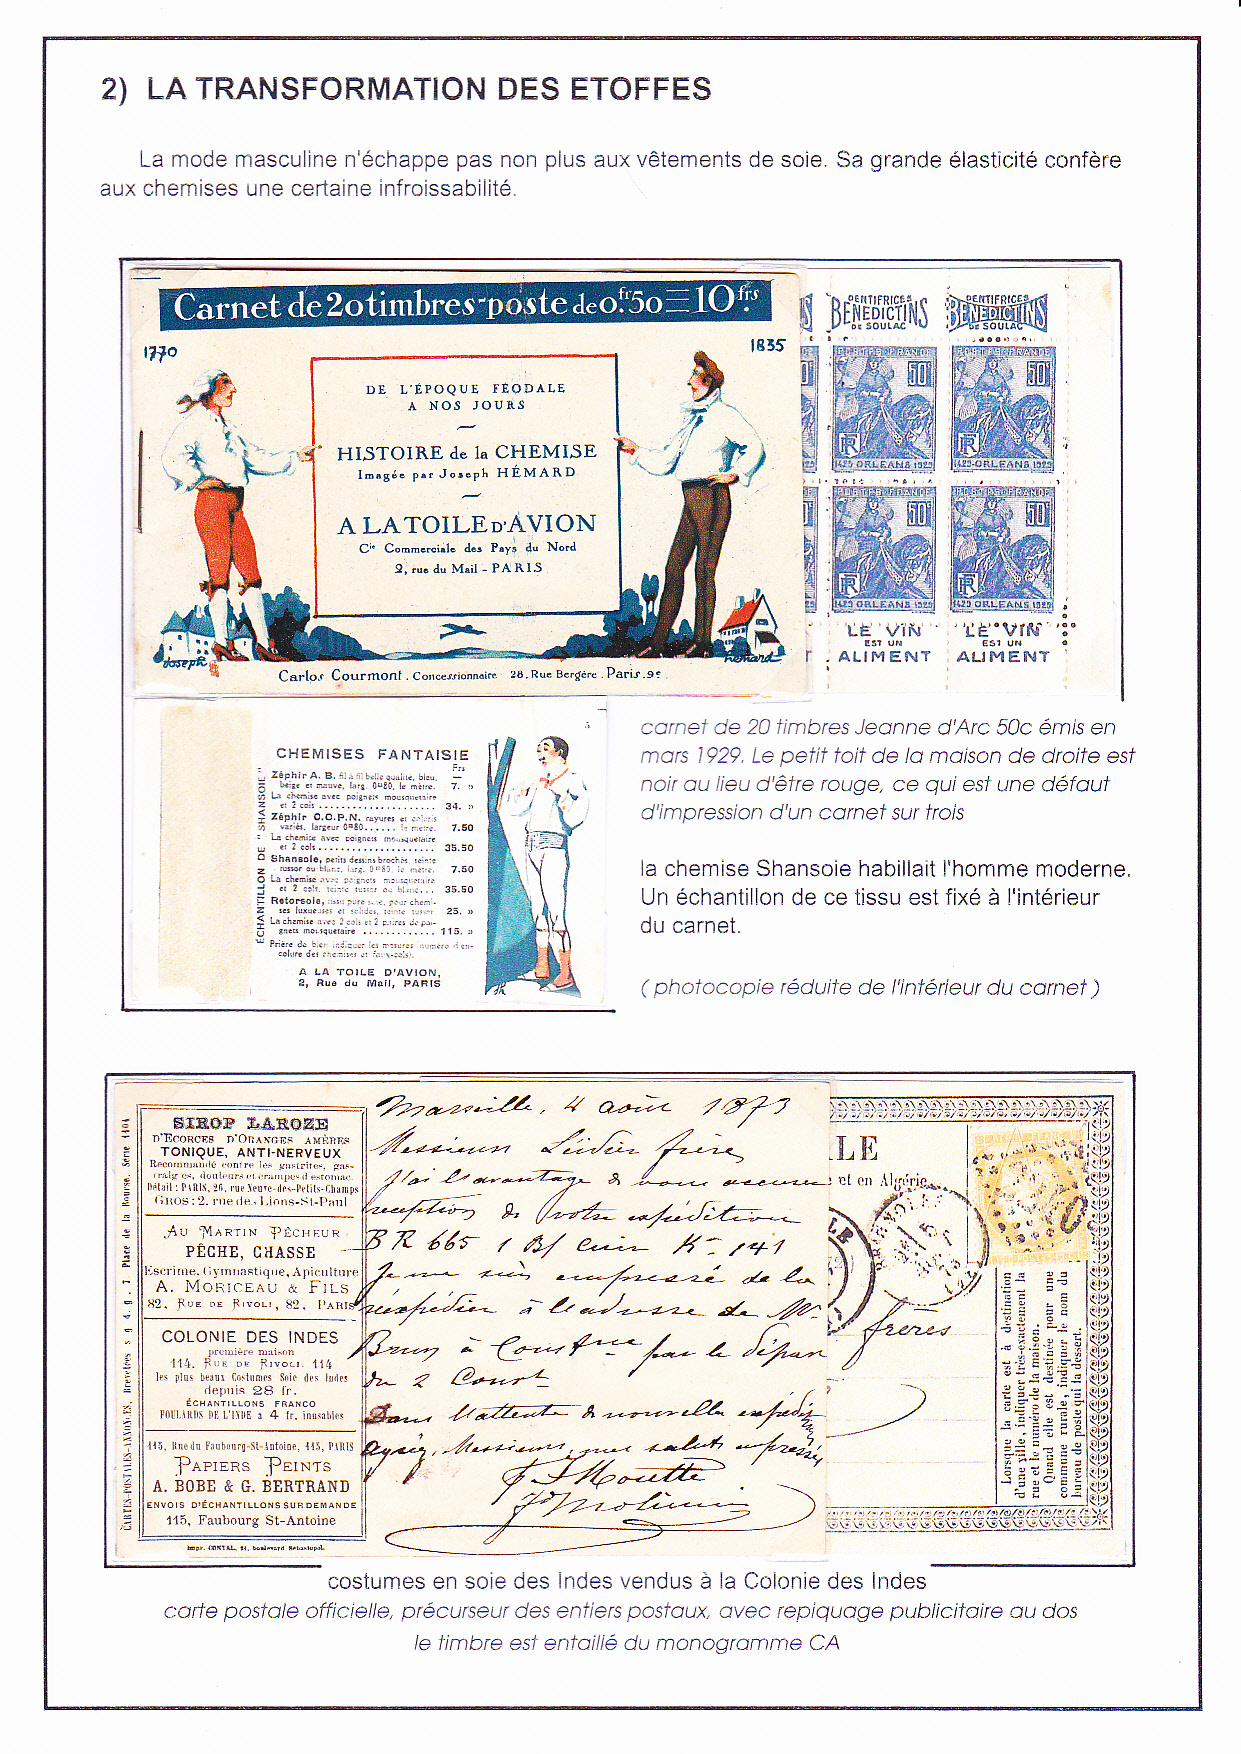 2) LA TRANSFORMATION DES ETOFFES
La mode masculine n'échappe pas non plus aux vêtements de soie. Sa grande élasticité confère
aux chemises une certaine infroissabilité.
Carnet de 20 timbres-poste de 0.fr50 = 10frs.
1770
1835
DE L'ÉPOQUE FÉODALE
A NOS JOURS
HISTOIRE de la CHEMISE
Imagée par Joseph HÉMARD
A LA TOILE D'AVION
Cie Commerciale des Pays du Nord
2, rue du Mail - PARIS
Joseph
Hémard
Carlos Courmont. Concessionnaire 28. Rue Bergère. Paris. 9e.
DENTIFRICES
BENEDICTINS
DE SOULAC
DENTIFRICES
BENEDICTINS
DE SOULAC
POSTES FRANCE
50c
RF
1429 ORLEANS 1929
POSTES FRANCE
50c
RF
1429-ORLEANS 1929
POSTES FRANCE
50c
RF
1429 ORLEANS 1929
POSTES FRANCE
50c
RF
1429 ORLEANS 1929
LE VIN
EST UN
ALIMENT
LE VIN
EST UN
ALIMENT
CHEMISES FANTAISIE
ÉCHANTILLON DE
Frs
Zéphir A. B. fil à fil belle qualité, bleu,
beige et mauve, larg. 0m80, le mètre. 7. »
La chemise avec poignets mousquetaire
et 2 cols 34. »
Zéphir O.O.P.N. rayures et coloris
variés, largeur 0m80 le mètre. 7.50
La chemise avec poignets mousquetaire
et 2 cols 35.50
Shansoie, petits dessins brochés, teinte
ou blanc, larg. 0m80, le mètre. 7.50
La chemise avec poignets mousquetaire
et 2 cols, teinte tussor ou blanc 35.50
Retorsoie, tissu pure soie, pour chemises
luxueuses et solides, teinte tussor 25. »
La chemise avec 2 cols et 2 paires de poignets
mousquetaire 115. »
Prière de bien indiquer les mesures numéro d'encolure
des chemises et faux-cols).
A LA TOILE D'AVION,
2, Rue du Mail, PARIS
carnet de 20 timbres Jeanne d'Arc 50c émis en
mars 1929. Le petit toit de la maison de droite est
noir au lieu d'être rouge, ce qui est une défaut
d'impression d'un carnet sur trois
la chemise Shansoie habillait l'homme moderne.
Un échantillon de ce tissu est fixé à l'intérieur
du carnet.
( photocopie réduite de l'intérieur du carnet )
CARTES-POSTALES-ANNONCES, Brevetées s g d. g. 7 Place de la Bourse. Série 1104
SIROP LAROZE
D'ECORCES D'ORANGES AMÈRES
TONIQUE, ANTI-NERVEUX
Recommandé contre les gastrites, gastralgies,
douleurs et crampes d'estomac.
Détail: PARIS, 26, rue Neuve-des-Petits-Champs
GROS: 2, rue des Lions-St-Paul
AU MARTIN PÊCHEUR
PÊCHE, CHASSE
Escrime, Gymnastique, Apiculture
A. MORICEAU & FILS
82, RUE DE RIVOLI, 82, PARIS
COLONIE DES INDES
première maison
114, RUE DE RIVOLI, 114
les plus beaux Costumes Soie des Indes
depuis 28 fr.
ÉCHANTILLONS FRANCO
FOULARDS DE L'INDE à 4 fr. inusables
115, Rue du Faubourg-St-Antoine, 115, PARIS
PAPIERS PEINTS
A. BOBE & G. BERTRAND
ENVOIS D'ÉCHANTILLONS SUR DEMANDE
115, Faubourg St-Antoine
Impr. CONTAL, boulevard Sébastopol.
Marseille, 4 août 1873
Messieurs frères
J'ai l'avantage de vous accuser
réception de votre expédition
BR 665 1 Bl Cuir K° 141
Je me suis empressé de la
réexpédier à l'adresse de Mr
Brun à par le départ
du 2 Court
Dans l'attente de nouvelles
Agréez, Messieurs, mes saluts empressés
LE
et en Algérie.
frères
Lorsque la carte est à destination
d'une ville, indiquer très-exactement la
rue et le numéro de la maison.
Quand elle est destinée pour une
commune rurale, indiquer le nom du
bureau de poste qui la dessert.
costumes en soie des Indes vendus à la Colonie des Indes
carte postale officielle, précurseur des entiers postaux, avec repiquage publicitaire au dos
le timbre est entaillé du monogramme CA